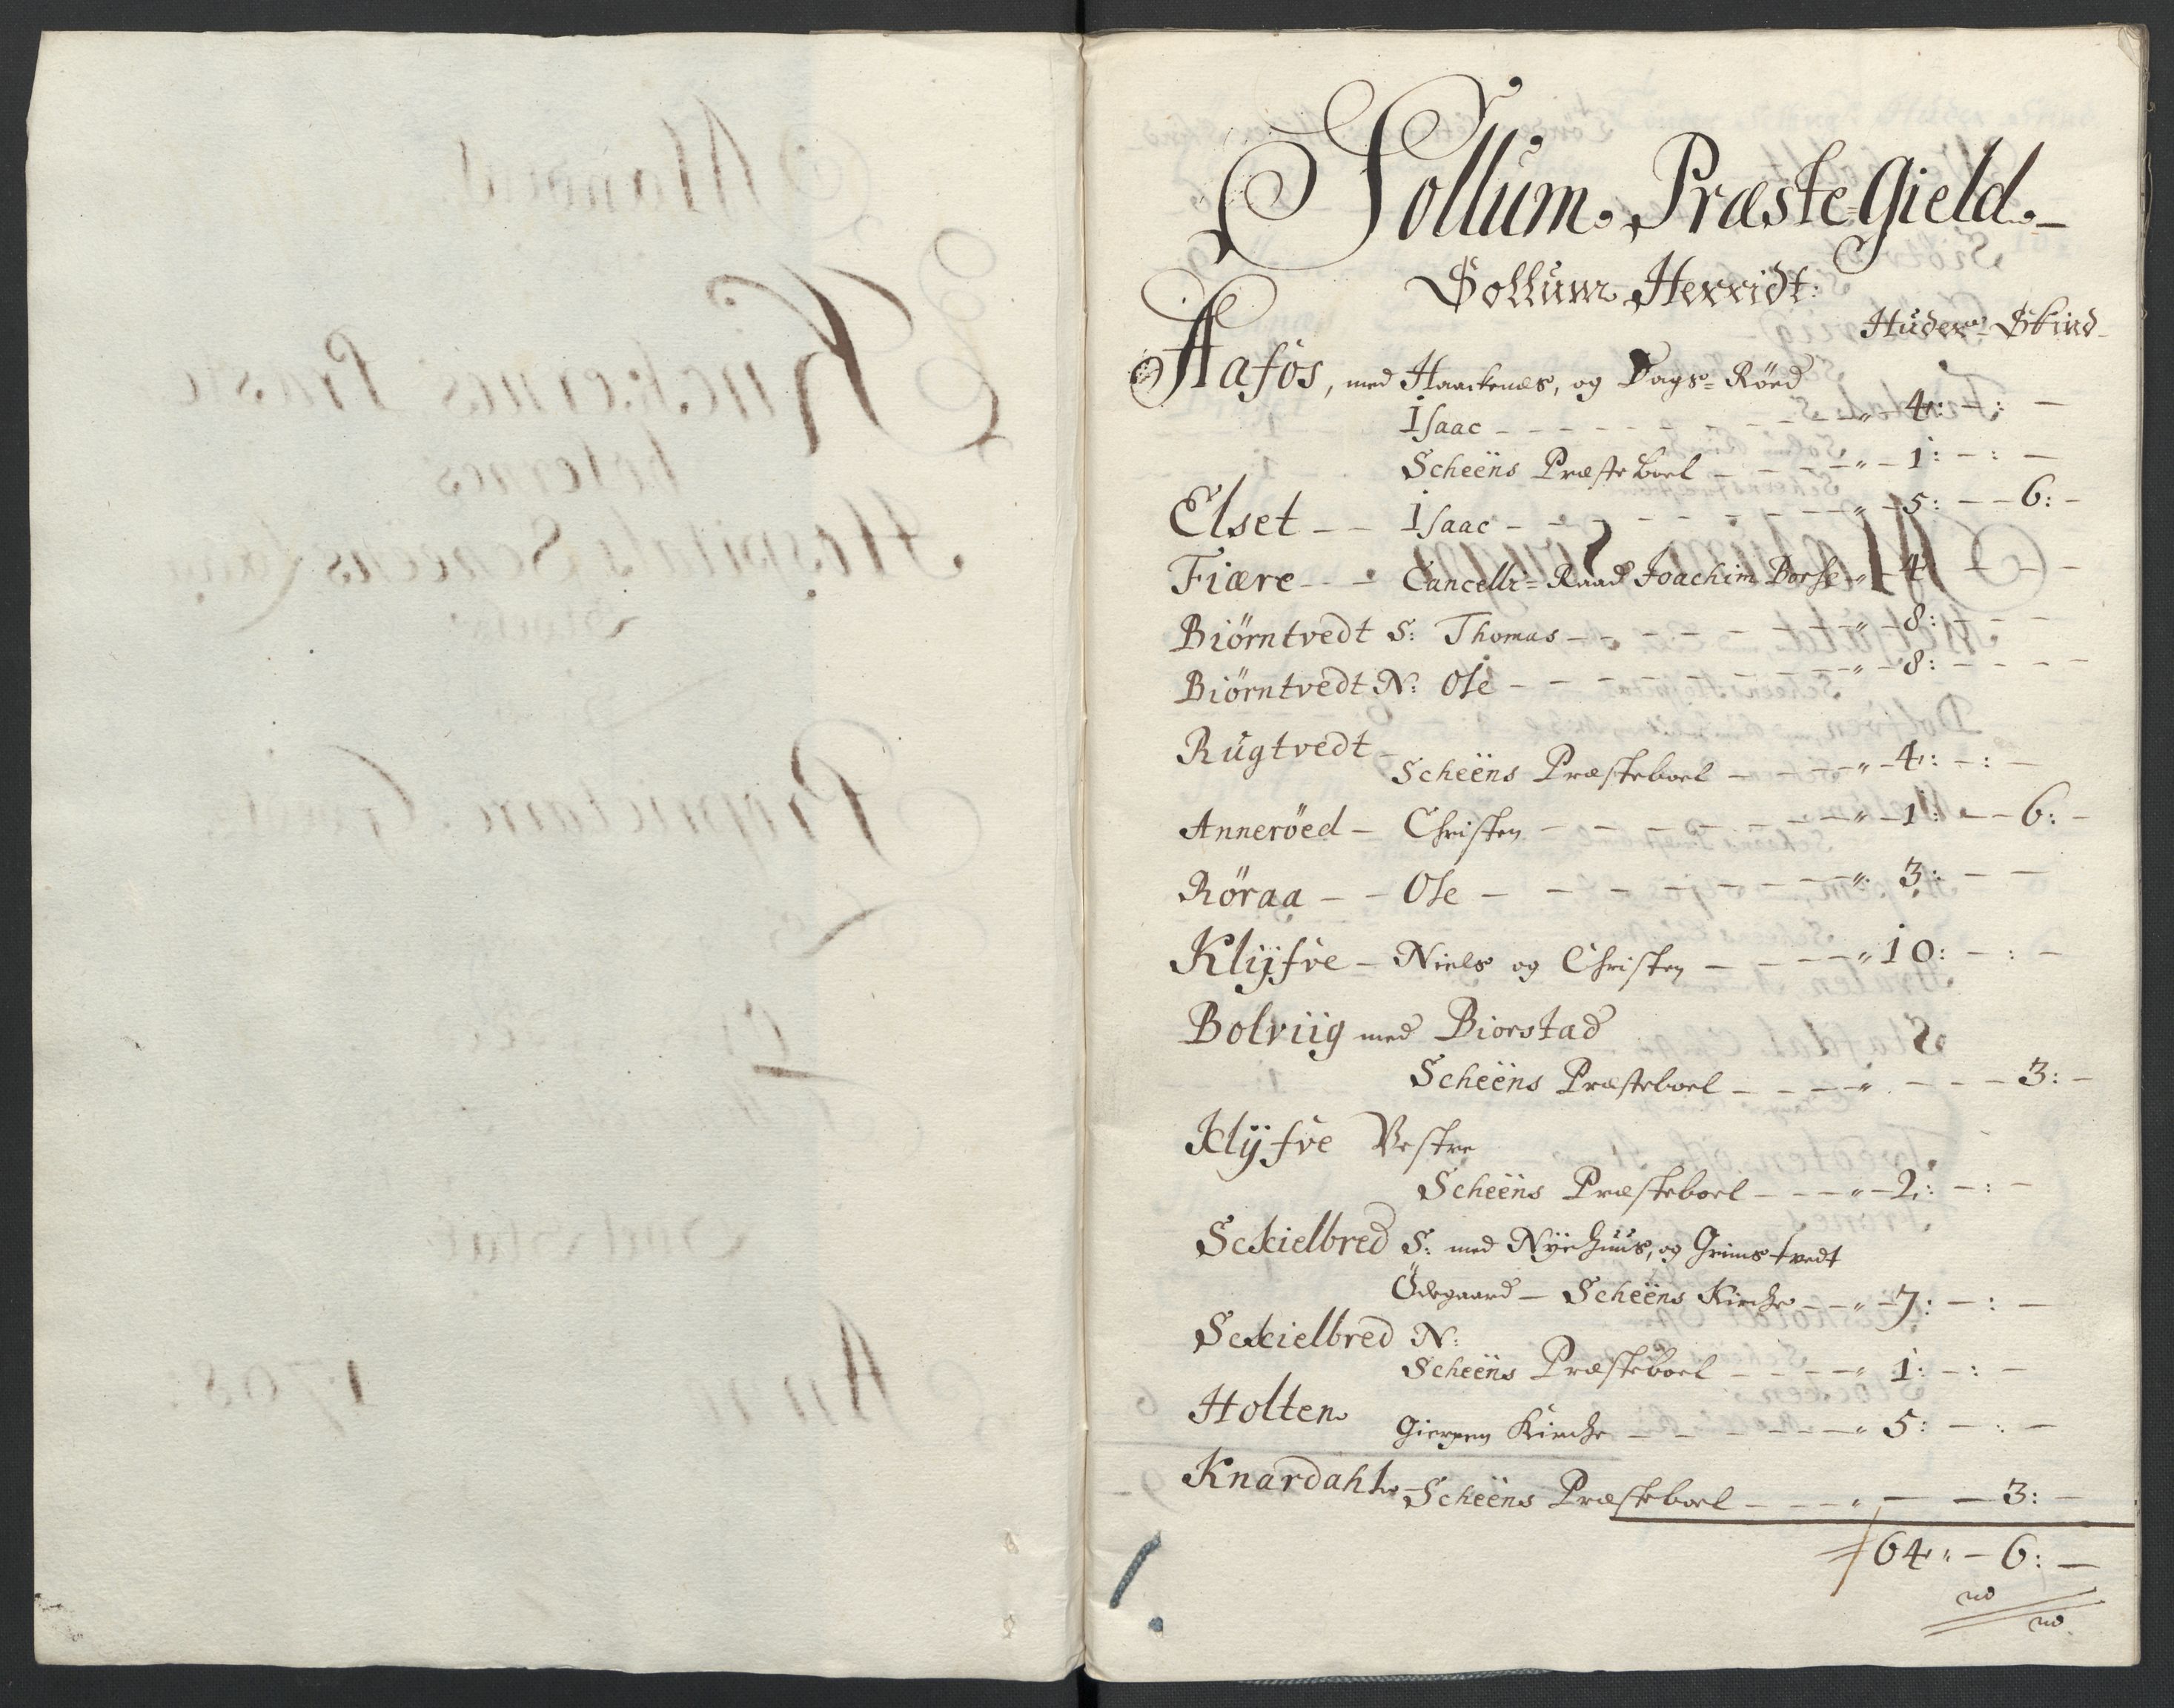 Sollum Præste Gield
Sollum Herridt:
Huder Skind
Aafos, med Haackenæs, og Dags= Röed
Isaac - - - - - - - - " - 4: - : -
Scheëns Præsteboel - - - - " - 1: - : -
Elset - - Isaac - - - - - - - - " - 5: - - 6: -
Fiære - - Cancellr= Raad Joachim Borse " - 4 - - -
Biörntvedt S: Thomas - - - - - - " - 8: - - -
Biörntvedt N: Ole - - - - - - - " - 8: - - - -
Rugtvedt -
Scheëns Præsteboel - - - - " - 4: - : -
Anneröed - Christen - - - - - - - " - 1: - - 6: -
Röraa - - Ole - - - - - - - - " 3: - -
Klÿfve - Niels og Christen - - - - " 10: - : -
Bolviig med Biorstad
Scheëns Præsteboel - - - - " - - - 3: -
Klÿfve Vestre
Scheëns Præsteboel - - - " - 2: - : -
Sckielbred S: med Nÿehuus, og Grimstvedt
Ödegaard - Scheëns Kirche - - " - 7: - : -
Sckielbred N:
Scheëns Præsteboel - - - - " 1: - : -
Holten
Gierpen Kirche - - - - - - " 5: - : -
Knardahl - Scheëns Præsteboel - - - " - - 3: -
64 " - 6: -